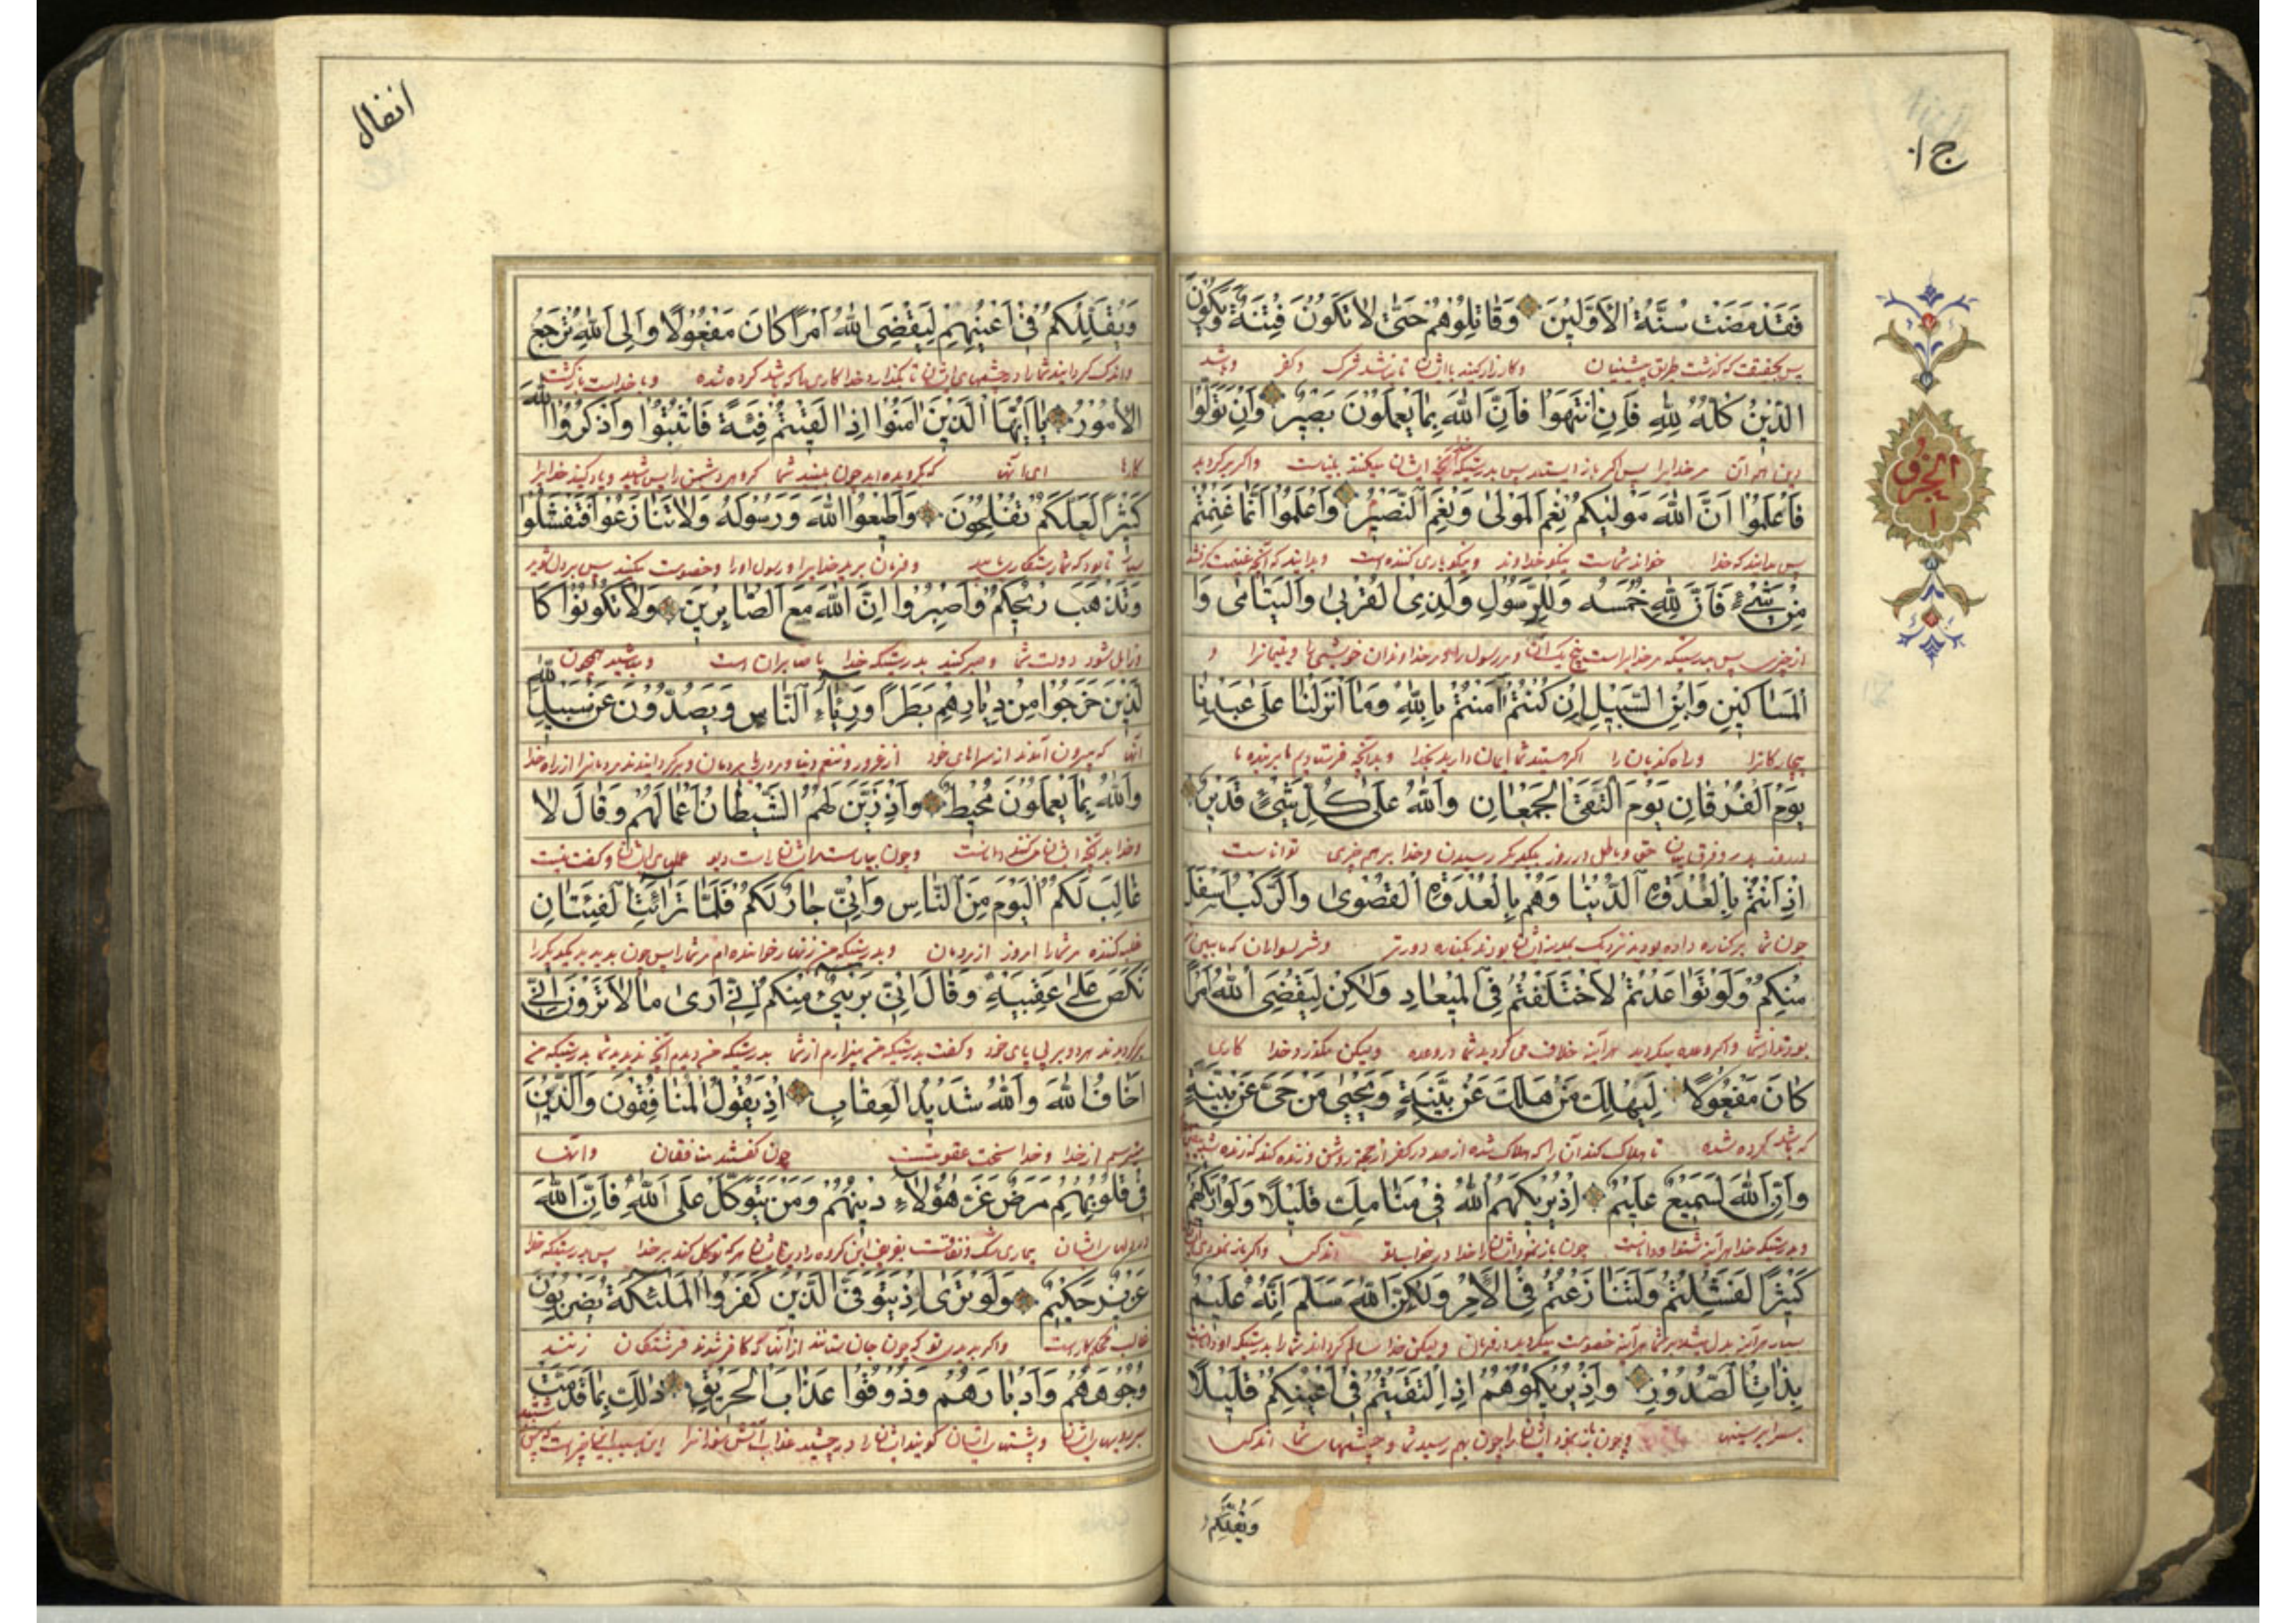 ج ۱۰
الجزؤ
فَقَدْ مَضَتْ سُنَّةُ الْاَوَّلِینَ وَقَاتِلُوهُمْ حَتّٰى لَا تَكُونَ فِتْنَةٌ وَیَكُونَ
پس بحقیقت که گذشت طریق پیشینیان وکارزار کنید با ایشان تا نباشد شرک وکفر وباشد
الدِّینُ كُلُّهُ لِلّٰهِ فَاِنِ انْتَهَوْا فَاِنَّ اللّٰهَ بِمَا یَعْمَلُونَ بَصِیرٌ وَاِنْ تَوَلَّوْا
دین همه آن مر خدایرا پس اگر باز ایستند پس بدرستیکه خدا بآنچه ایشان میکنند بیناست واگر برگردید
فَاعْلَمُوا اَنَّ اللّٰهَ مَوْلٰیكُمْ نِعْمَ الْمَوْلٰى وَنِعْمَ النَّصِیرُ وَاعْلَمُوا اَنَّمَا غَنِمْتُمْ
پس بدانید که خدا خداوند شماست نیکو خداوند ونیکو یاری کننده است وبدانید که آنچه غنیمت گرفتید
مِنْ شَیْءٍ فَاَنَّ لِلّٰهِ خُمُسَهُ وَلِلرَّسُولِ وَلِذِی الْقُرْبٰى وَالْیَتَامٰى وَا
از چیزی پس بدرستیکه مر خدایراست پنج یک آن ومر رسول را ومر خداوندان خویشی را ویتیمانرا و
لْمَسَاكِینِ وَابْنِ السَّبِیلِ اِنْ كُنْتُمْ اٰمَنْتُمْ بِاللّٰهِ وَمَا اَنْزَلْنَا عَلٰى عَبْدِنَا
بیچارگانرا وراه گذریان را اگر هستید شما ایمان دارید بخدا وبدآنچه فرستادیم ما بر بنده ما
یَوْمَ الْفُرْقَانِ یَوْمَ الْتَقَى الْجَمْعَانِ وَاللّٰهُ عَلٰى كُلِّ شَیْءٍ قَدِیرٌ
در روز بدر وفرق میان حق وباطل در روز بیکدیگر رسیدن وخدا بر هر چیزی تواناست
اِذْ اَنْتُمْ بِالْعُدْوَةِ الدُّنْیَا وَهُمْ بِالْعُدْوَةِ الْقُصْوٰى وَالرَّكْبُ اَسْفَلَ
چون شما بر کناره داده بودید نزدیک بمدینه ایشان بودند بکناره دورتر
مِنْكُمْ وَلَوْ تَوَاعَدْتُمْ لَاخْتَلَفْتُمْ فِی الْمِیعَادِ وَلٰكِنْ لِیَقْضِیَ اللّٰهُ اَمْرًا
بودند از شما واگر وعده میکردید هر آینه خلاف می کردید شما در وعده ولیکن بگذرد خدا کاری
كَانَ مَفْعُولًا لِیَهْلِكَ مَنْ هَلَكَ عَنْ بَیِّنَةٍ وَیَحْیٰى مَنْ حَیَّ عَنْ بَیِّنَةٍ
که باشد کرده شده تا هلاک کند آن را که هلاک شده
وَاِنَّ اللّٰهَ لَسَمِیعٌ عَلِیمٌ اِذْ یُرِیكَهُمُ اللّٰهُ فِی مَنَامِكَ قَلِیلًا وَلَوْ اَرٰیكَهُمْ
وبدرستیکه خدا هر آینه شنوا وداناست چون باز نمود ایشانرا خدا در خواب تو اندکی
كَثِیرًا لَفَشِلْتُمْ وَلَتَنَازَعْتُمْ فِی الْاَمْرِ وَلٰكِنَّ اللّٰهَ سَلَّمَ اِنَّهُ عَلِیمٌ
بسیار هر آینه بد دل میشدید شما هر آینه خصومت میکردید در فرمان ولیکن خدا سالم گرداند شما را بدرستیکه او داناست
بِذَاتِ الصُّدُورِ وَاِذْ یُرِیكُمُوهُمْ اِذِ الْتَقَیْتُمْ فِی اَعْیُنِكُمْ قَلِیلًا
وچون باز نمود ایشانرا چون بهم رسیدید شما در چشمهای شما اندکی
وَیُقَلِّلُكُمْ
انفال
وَیُقَلِّلُكُمْ فِی اَعْیُنِهِمْ لِیَقْضِیَ اللّٰهُ اَمْرًا كَانَ مَفْعُولًا وَاِلَى اللّٰهِ تُرْجَعُ
واندک گردانید شما را در چشمهای ایشان تا بگذارد خدا کاری را که باشد کرده شده وبا خداست بازگشت
الْاُمُورُ یَا اَیُّهَا الَّذِینَ اٰمَنُوا اِذَا لَقِیتُمْ فِئَةً فَاثْبُتُوا وَاذْكُرُوا اللّٰهَ
کارها ای آنها که گرویده اید چون ببینید شما گروه دشمن را پس شاید ویاد کنید خدایرا
كَثِیرًا لَعَلَّكُمْ تُفْلِحُونَ وَاَطِیعُوا اللّٰهَ وَرَسُولَهُ وَلَا تَنَازَعُوا فَتَفْشَلُوا
تا بود که شما رستگاری یابید وفرمان برید خدایرا ورسول اورا وخصومت مکنید پس بد دل شوید
وَتَذْهَبَ رِیحُكُمْ وَاصْبِرُوا اِنَّ اللّٰهَ مَعَ الصَّابِرِینَ وَلَا تَكُونُوا كَا
وزایل شود دولت شما وصبر کنید بدرستیکه خدا با صابران است ومباشید همچون
لَّذِینَ خَرَجُوا مِنْ دِیَارِهِمْ بَطَرًا وَرِئَاءَ النَّاسِ وَیَصُدُّونَ عَنْ سَبِیلِ اللّٰهِ
آنها که بیرون آمدند از سراهای خود از غرور وتنعم دنیا
وَاللّٰهُ بِمَا یَعْمَلُونَ مُحِیطٌ وَاِذْ زَیَّنَ لَهُمُ الشَّیْطَانُ اَعْمَالَهُمْ وَقَالَ لَا
وخدا بدآنچه ایشان میکنند داناست وچون بیاراست ایشانراست دیو عملهای ایشان وگفت نیست
غَالِبَ لَكُمُ الْیَوْمَ مِنَ النَّاسِ وَاِنِّی جَارٌ لَكُمْ فَلَمَّا تَرَائَتِ الْفِئَتَانِ
غلبه کننده مر شما را امروز از مردمان وبدرستیکه من زنهار خواننده ام مر شما را پس چون بدید یکدیگر را
نَكَصَ عَلٰى عَقِبَیْهِ وَقَالَ اِنِّی بَرِیءٌ مِنْكُمْ اِنِّی اَرٰى مَا لَا تَرَوْنَ اِنِّی
برگردیدند هر دو بر پی پای خود وگفت بدرستیکه من بیزارم از شما بدرستیکه من دیدم آنچه ندیدید شما بدرستیکه من
اَخَافُ اللّٰهَ وَاللّٰهُ شَدِیدُ الْعِقَابِ اِذْ یَقُولُ الْمُنَافِقُونَ وَالَّذِینَ
میترسم از خدا وخدا سخت عقوبتست چون گفتند منافقان وآنها
فِی قُلُوبِهِمْ مَرَضٌ غَرَّ هٰؤُلَاءِ دِینُهُمْ وَمَنْ یَتَوَكَّلْ عَلَى اللّٰهِ فَاِنَّ اللّٰهَ
در دلهای ایشان بیماری شک ونفاقست بفریفت این گروه را دین ایشان هر که توکل کند بر خدا پس بدرستیکه خدا
عَزِیزٌ حَكِیمٌ وَلَوْ تَرٰى اِذْ یَتَوَفَّى الَّذِینَ كَفَرُوا الْمَلٰئِكَةُ یَضْرِبُونَ
غالب محکم کارست واگر بدیدی تو که چون جان ستانند از آنها که کافر شدند فرشتگان زنند
وُجُوهَهُمْ وَاَدْبَارَهُمْ وَذُوقُوا عَذَابَ الْحَرِیقِ ذٰلِكَ بِمَا قَدَّمَتْ
بر رویهای ایشان وپشتهای ایشان گویند ایشانرا در چشید عذاب آتش سوزانرا